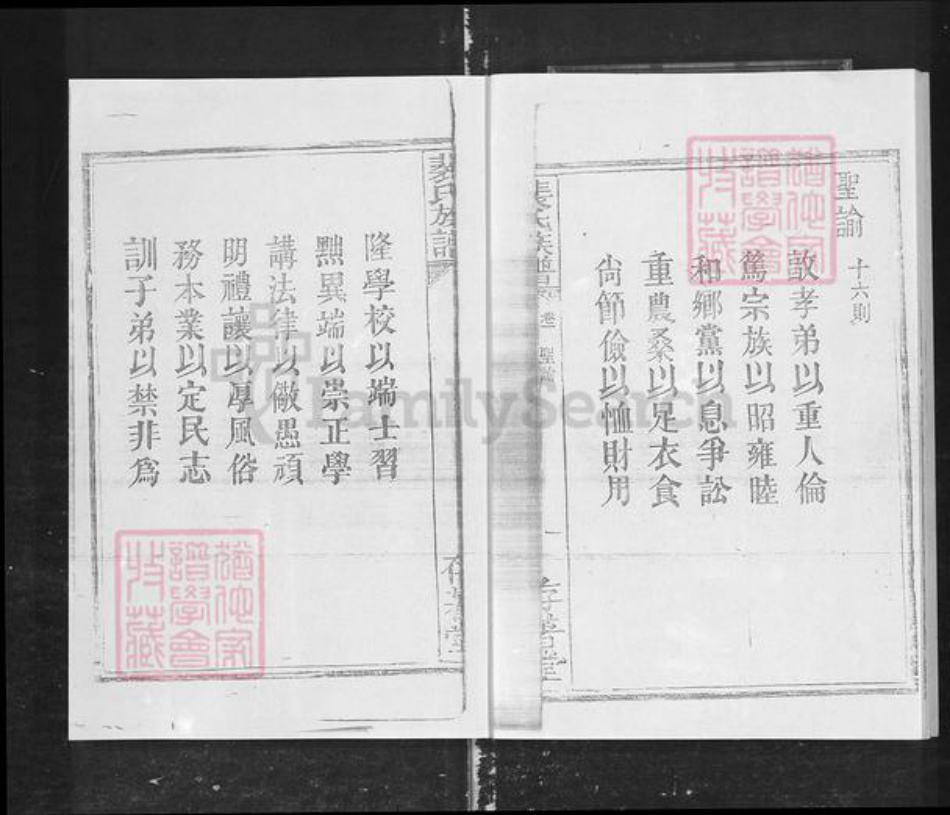 聖諭
十六則
敦孝弟以重人倫
篤宗族以昭雍睦
和鄉黨以息爭訟
重農桑以足衣食
尚節儉以恤財用
裴氏族譜 卷 聖諭 一
裴氏族譜
隆學校以端士習
黜異端以崇正學
講法律以儆愚頑
明禮讓以厚風俗
務本業以定民志
訓子弟以禁非為
猶他家
譜學會
特藏
猶他家
譜學會
特藏
FamilySearch